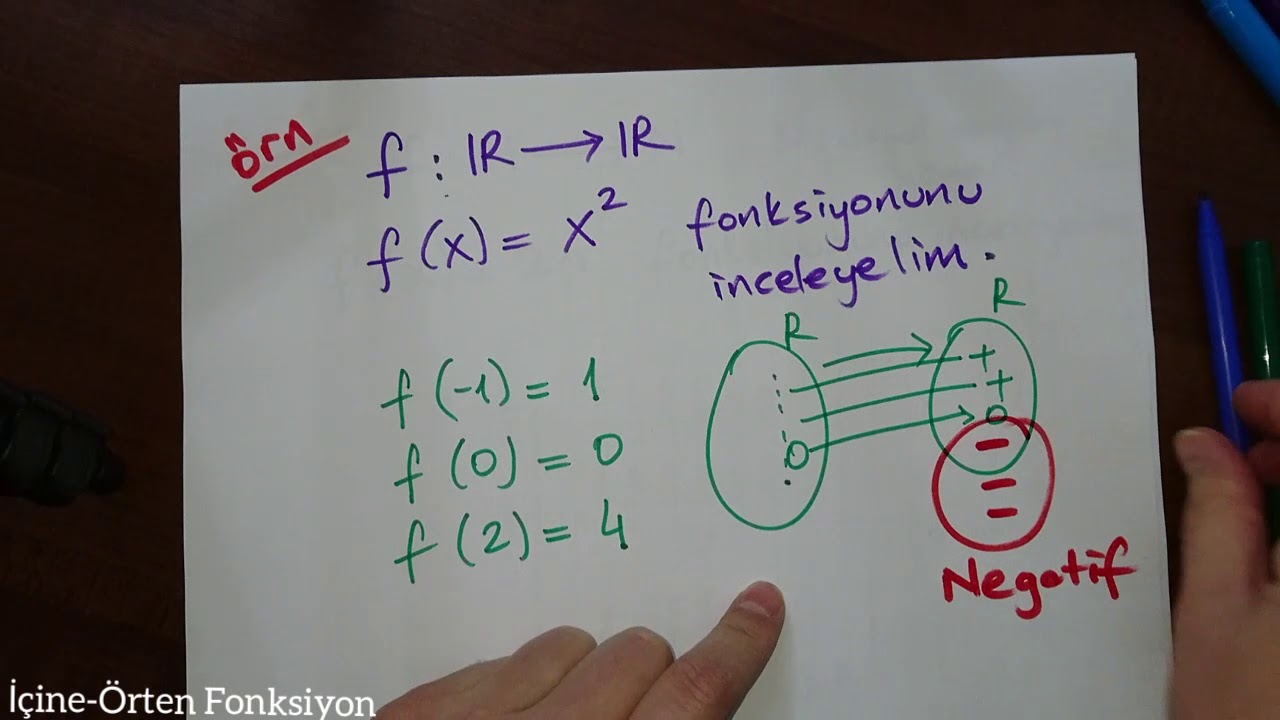 örn
f : IR → IR
f(x) = x² fonksiyonunu
inceleyelim.
f(-1) = 1
f(0) = 0
f(2) = 4
R
R
+
+
0
0
-
-
-
Negatif
İçine-Örten Fonksiyon